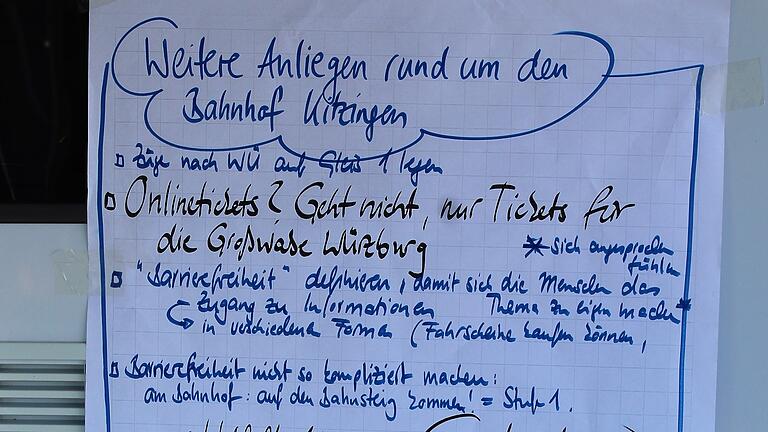 Weitere Anliegen rund um den
Bahnhof Kitzingen
Züge nach WÜ auf Gleis 1 legen
Onlinetickets? Geht nicht, nur Tickets für
die Großwabe Würzburg
* sich angesprochen
fühlen
"Barrierefreiheit" definieren, damit sich die Menschen das
Zugang zu Informationen Thema zu eigen machen *
in verschiedenen Formen (Fahrscheine kaufen können,
Barrierefreiheit nicht so kompliziert machen:
am Bahnhof: auf den Bahnsteig kommen! = Stufe 1.